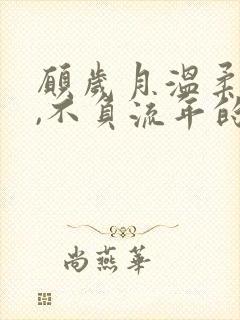 願歲月溫柔
,不負流年的
尚燕華